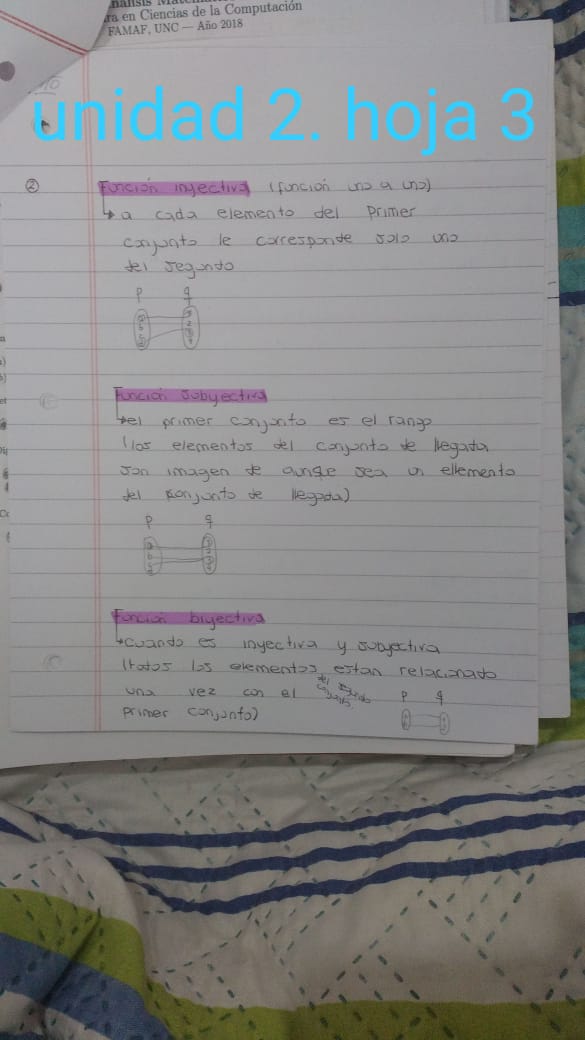 ra en Ciencias de la Computación
FAMAF, UNC — Año 2018
unidad 2. hoja 3
② Función inyectiva (función uno a uno)
↳ a cada elemento del primer
conjunto le corresponde solo uno
del segundo
P q
Función subyectiva
el primer conjunto es el rango
(los elementos del conjunto de llegada
son imagen de aunqe sea un ellemento
del conjunto de llegada)
P q
Función biyectiva
cuando es inyectiva y subyectiva
(todos los elementos estan relacionado
una vez con el
P q
primer conjunto)